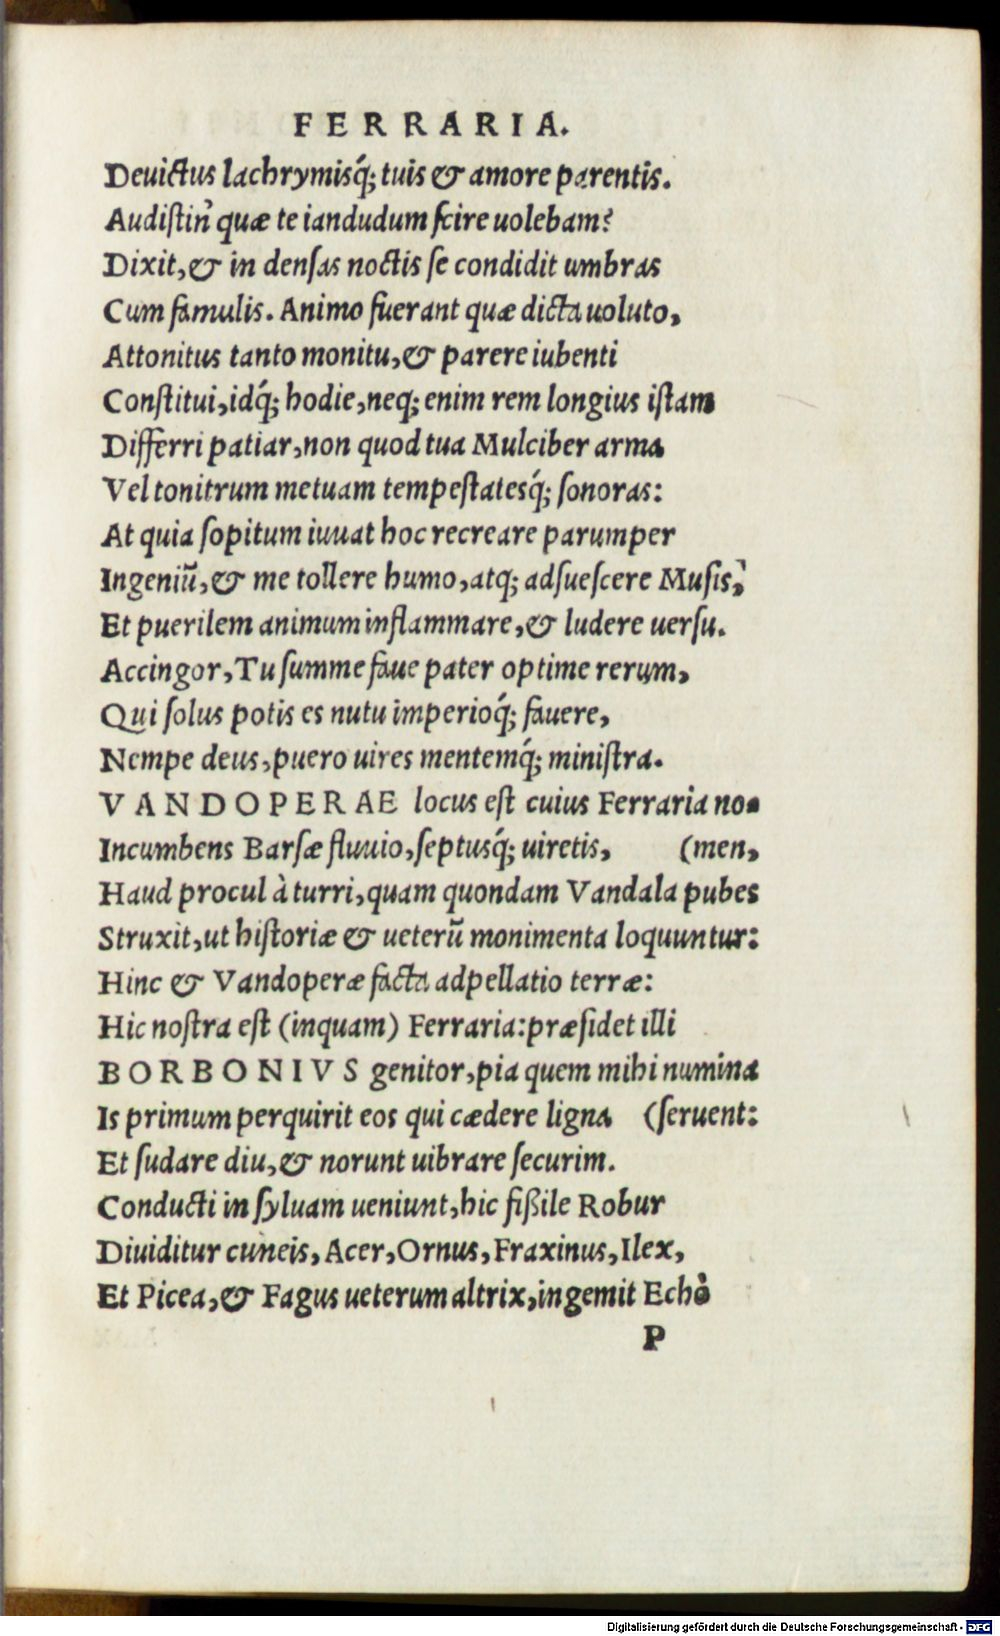 FERRARIA.
Deuictus lachrymisq́; tuis & amore parentis.
Audistin' quæ te iandudum scire uolebam?
Dixit, & in densas noctis se condidit umbras
Cum famulis. Animo fuerant quæ dicta uoluto,
Attonitus tanto monitu, & parere iubenti
Constitui, idq́; hodie, neq; enim rem longius istam
Differri patiar, non quod tua Mulciber arma
Vel tonitrum metuam tempestatesq́; sonoras:
At quia sopitum iuuat hoc recreare parumper
Ingeniũ, & me tollere humo, atq; adsuescere Musis,
Et puerilem animum inflammare, & ludere uersu.
Accingor, Tu summe faue pater optime rerum,
Qui solus potis es nutu imperioq́; fauere,
Nempe deus, puero uires mentemq́; ministra.
VANDOPERAE locus est cuius Ferraria no-
Incumbens Barsæ fluuio, septusq́; uiretis, (men,
Haud procul à turri, quam quondam Vandala pubes
Struxit, ut historiæ & ueterũ monimenta loquuntur:
Hinc & Vandoperæ facta adpellatio terræ:
Hic nostra est (inquam) Ferraria: præsidet illi
BORBONIVS genitor, pia quem mihi numina
Is primum perquirit eos qui cædere ligna (seruent:
Et sudare diu, & norunt uibrare securim.
Conducti in syluam ueniunt, hic fißile Robur
Diuiditur cuneis, Acer, Ornus, Fraxinus, Ilex,
Et Picea, & Fagus ueterum altrix, ingemit Echò
P
Digitalisierung gefördert durch die Deutsche Forschungsgemeinschaft - DFG